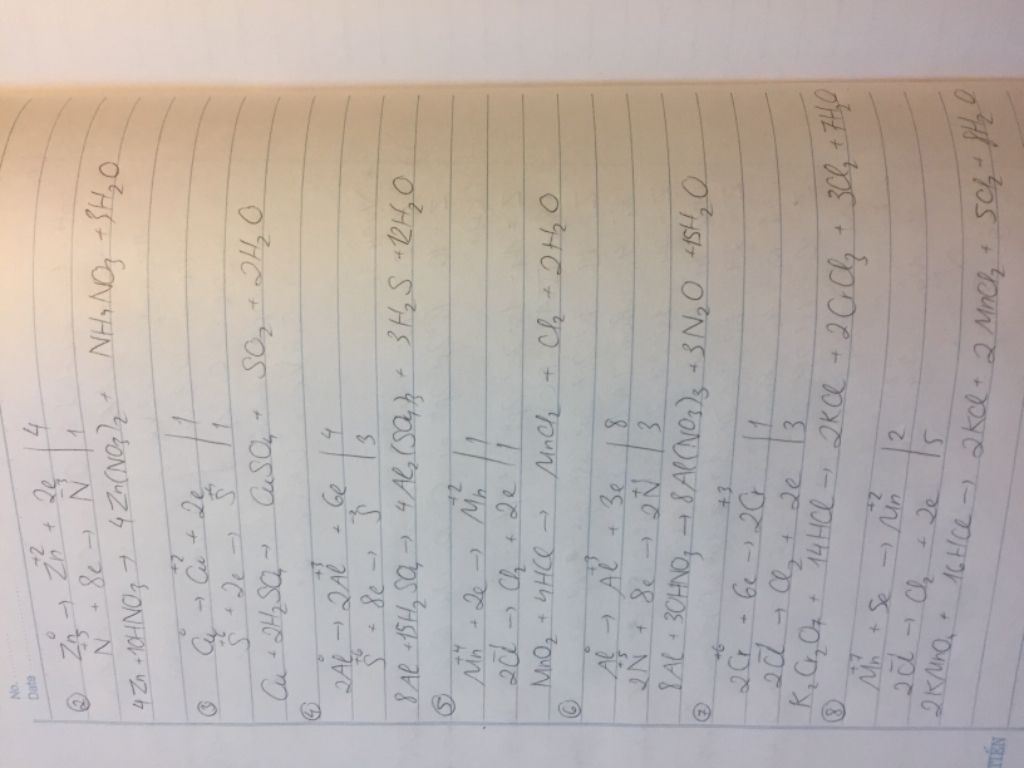 No.
Date
② Zn⁰ → Zn⁺² + 2e | 4
N⁺⁵ + 8e → N⁻³ | 1
4Zn + 10HNO₃ → 4Zn(NO₃)₂ + NH₄NO₃ + 3H₂O
③ Cu⁰ → Cu⁺² + 2e | 1
S⁺⁶ + 2e → S⁺⁴ | 1
Cu + 2H₂SO₄ → CuSO₄ + SO₂ + 2H₂O
④ 2Al⁰ → 2Al⁺³ + 6e | 4
S⁺⁶ + 8e → S⁻² | 3
8Al + 15H₂SO₄ → 4Al₂(SO₄)₃ + 3H₂S + 12H₂O
⑤ Mn⁺⁴ + 2e → Mn⁺² | 1
2Cl⁻ → Cl₂ + 2e | 1
MnO₂ + 4HCl → MnCl₂ + Cl₂ + 2H₂O
⑥ Al⁰ → Al⁺³ + 3e | 8
2N⁺⁵ + 8e → 2N⁺ | 3
8Al + 30HNO₃ → 8Al(NO₃)₃ + 3N₂O + 15H₂O
⑦ 2Cr⁺⁶ + 6e → 2Cr⁺³ | 1
2Cl⁻ → Cl₂ + 2e | 3
K₂Cr₂O₇ + 14HCl → 2KCl + 2CrCl₃ + 3Cl₂ + 7H₂O
⑧ Mn⁺⁷ + 5e → Mn⁺² | 2
2Cl⁻ → Cl₂ + 2e | 5
2KMnO₄ + 16HCl → 2KCl + 2MnCl₂ + 5Cl₂ + 8H₂O
TIẾN